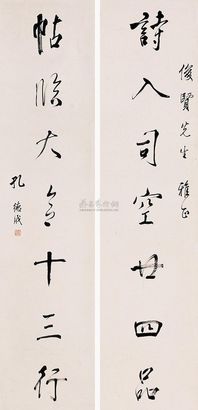 俊賢先生雅正
詩入司空廿四品
帖臨大令十三行
孔德成